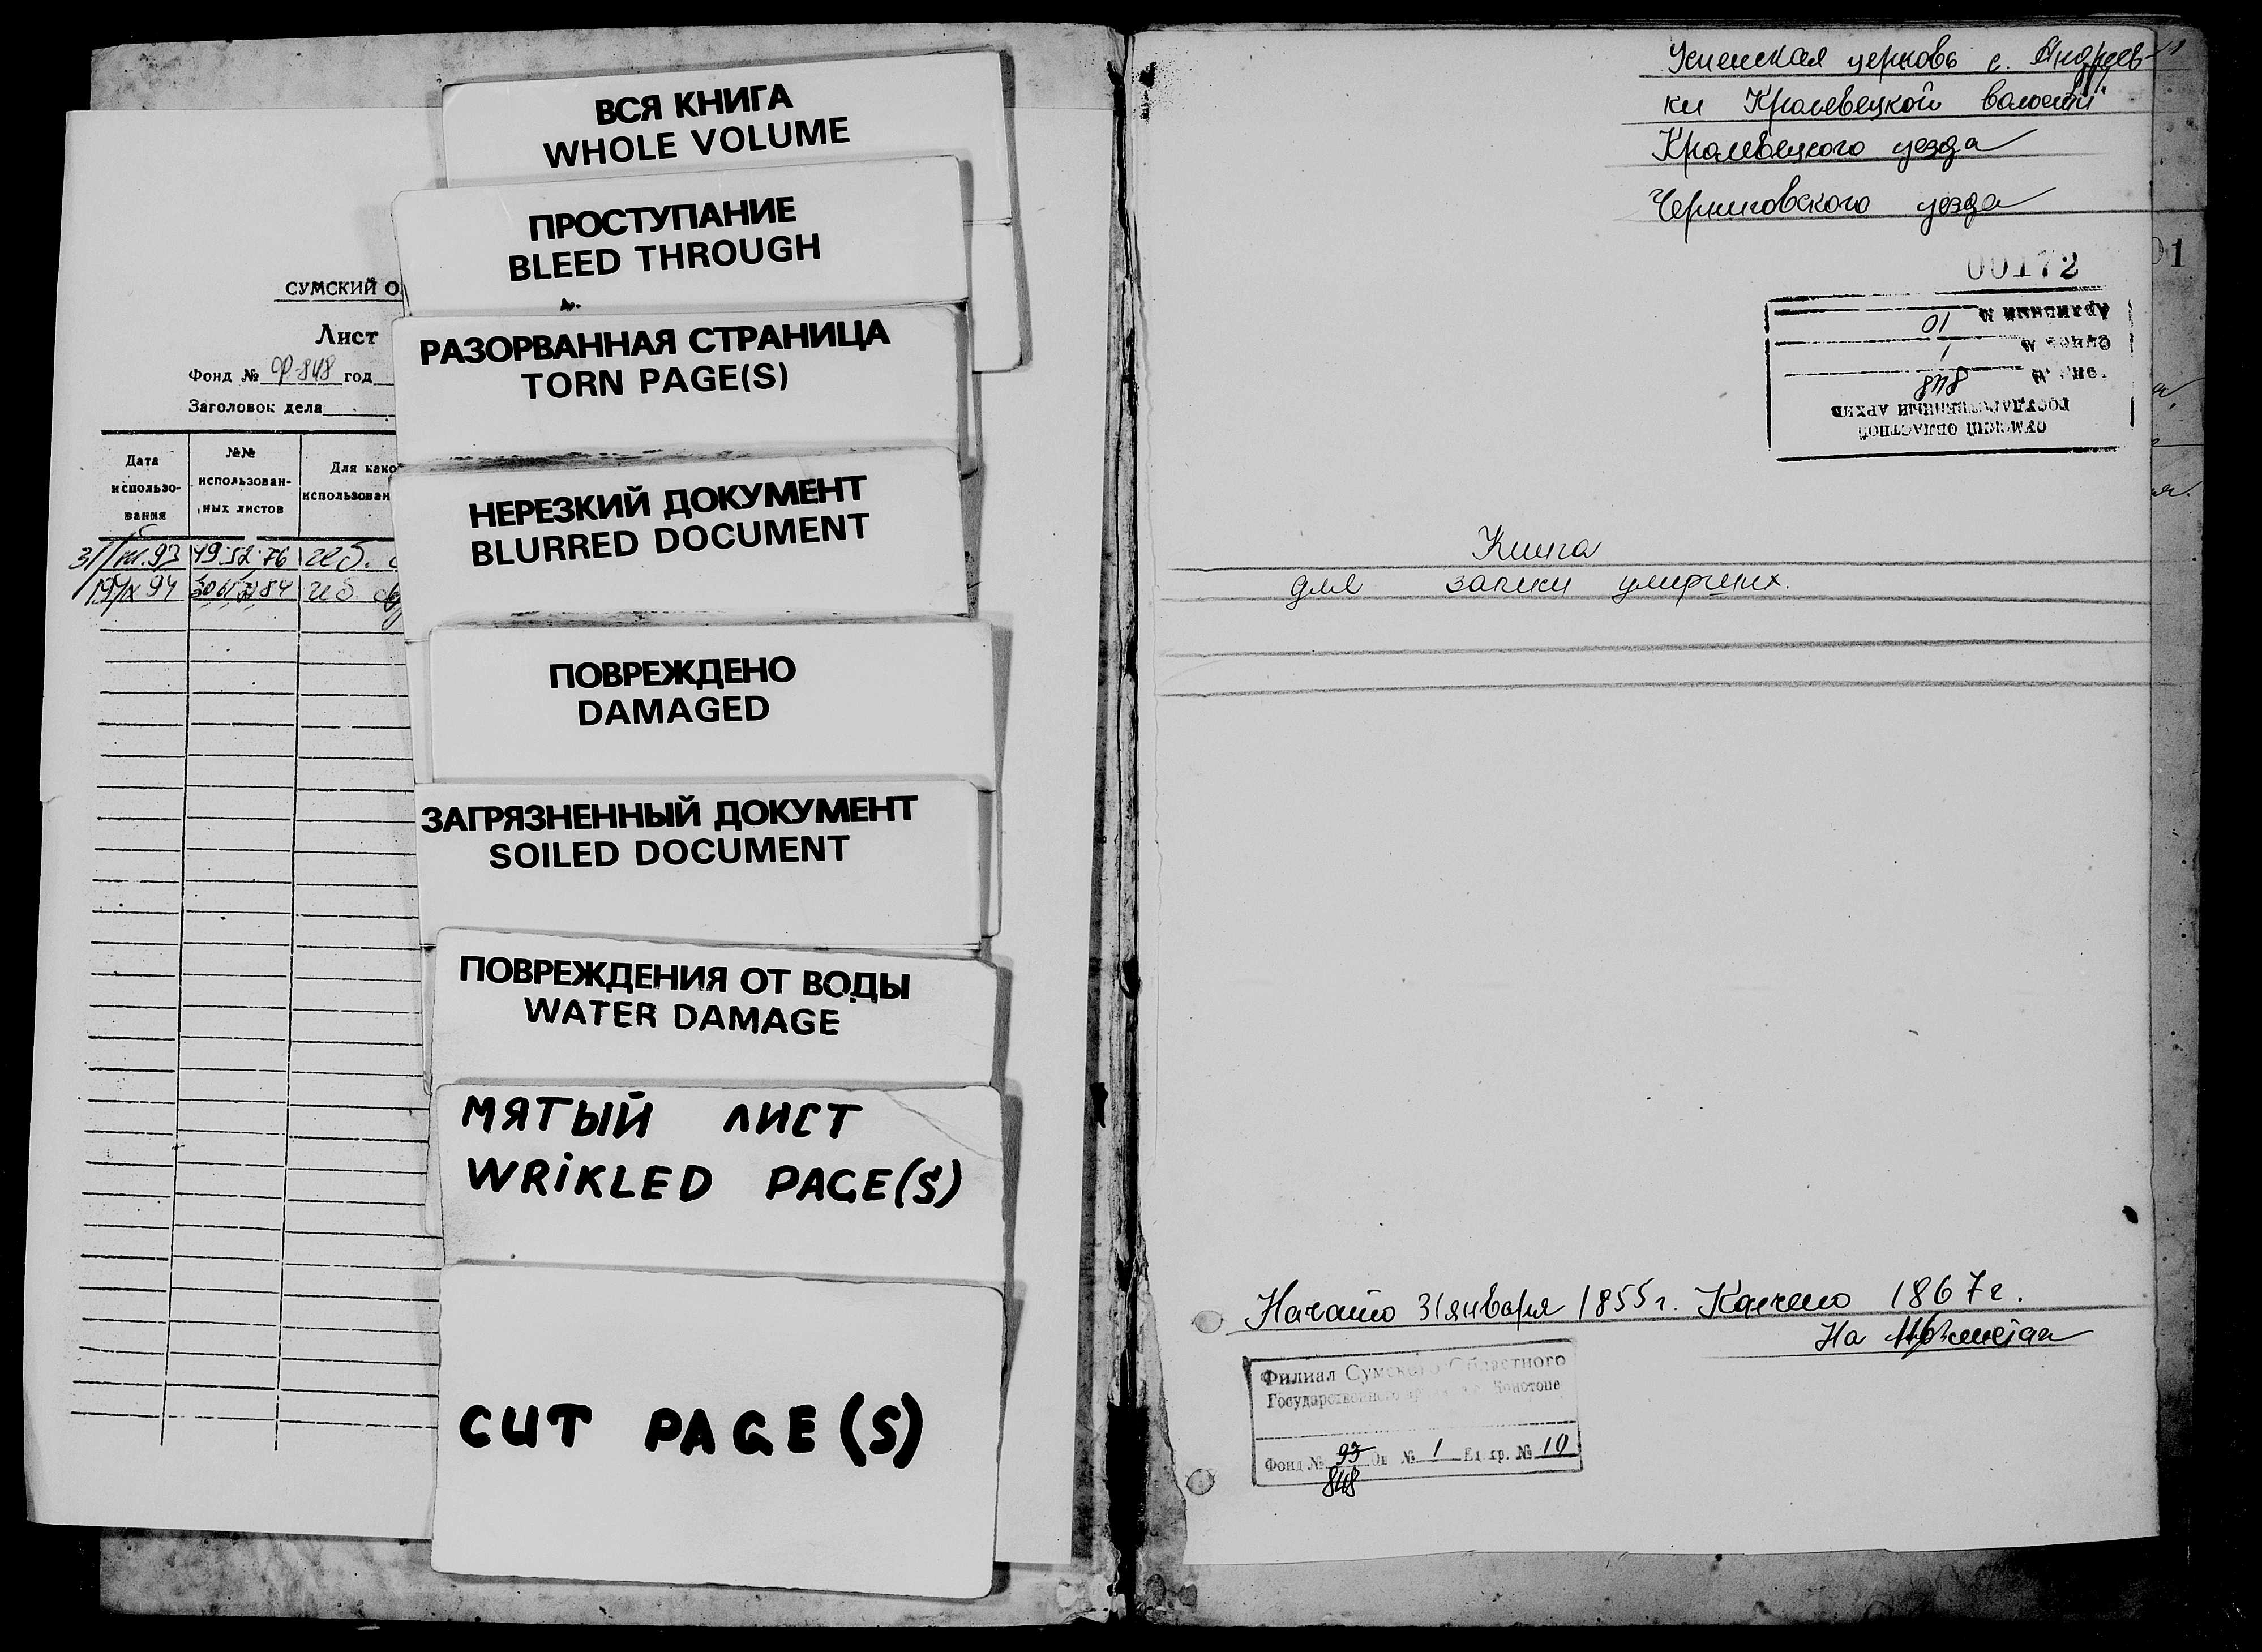 СУМСКИЙ О
Лист
Фонд № Ф-848 год
Заголовок дела
Дата использо- вания
№№ использован- ных листов
Для како использован
31/III.93 49.52.76 геб.
19/IX 94 геб.
ВСЯ КНИГА
WHOLE VOLUME
ПРОСТУПАНИЕ
BLEED THROUGH
РАЗОРВАННАЯ СТРАНИЦА
TORN PAGE(S)
НЕРЕЗКИЙ ДОКУМЕНТ
BLURRED DOCUMENT
ПОВРЕЖДЕНО
DAMAGED
ЗАГРЯЗНЕННЫЙ ДОКУМЕНТ
SOILED DOCUMENT
ПОВРЕЖДЕНИЯ ОТ ВОДЫ
WATER DAMAGE
МЯТЫЙ ЛИСТ
WRiKLED PAGE(S)
CUT PAGE(S)
Успенская церковь с. Андреев-
ки Кролевецкой волости
Кролевецкого уезда
Черниговского уезда
00172
01
Опись № 1
848
ГОСУДАРСТВЕННЫЙ АРХИВ
СУМСКИЙ ОБЛАСТНОЙ
Книга
для записи умерших.
Начато 31 января 1855 г. Кончено 1867 г.
На
Филиал Сумского Областного
Государственного Конотопе
Фонд № 93 Оп № 1 Ед хр. № 10
848